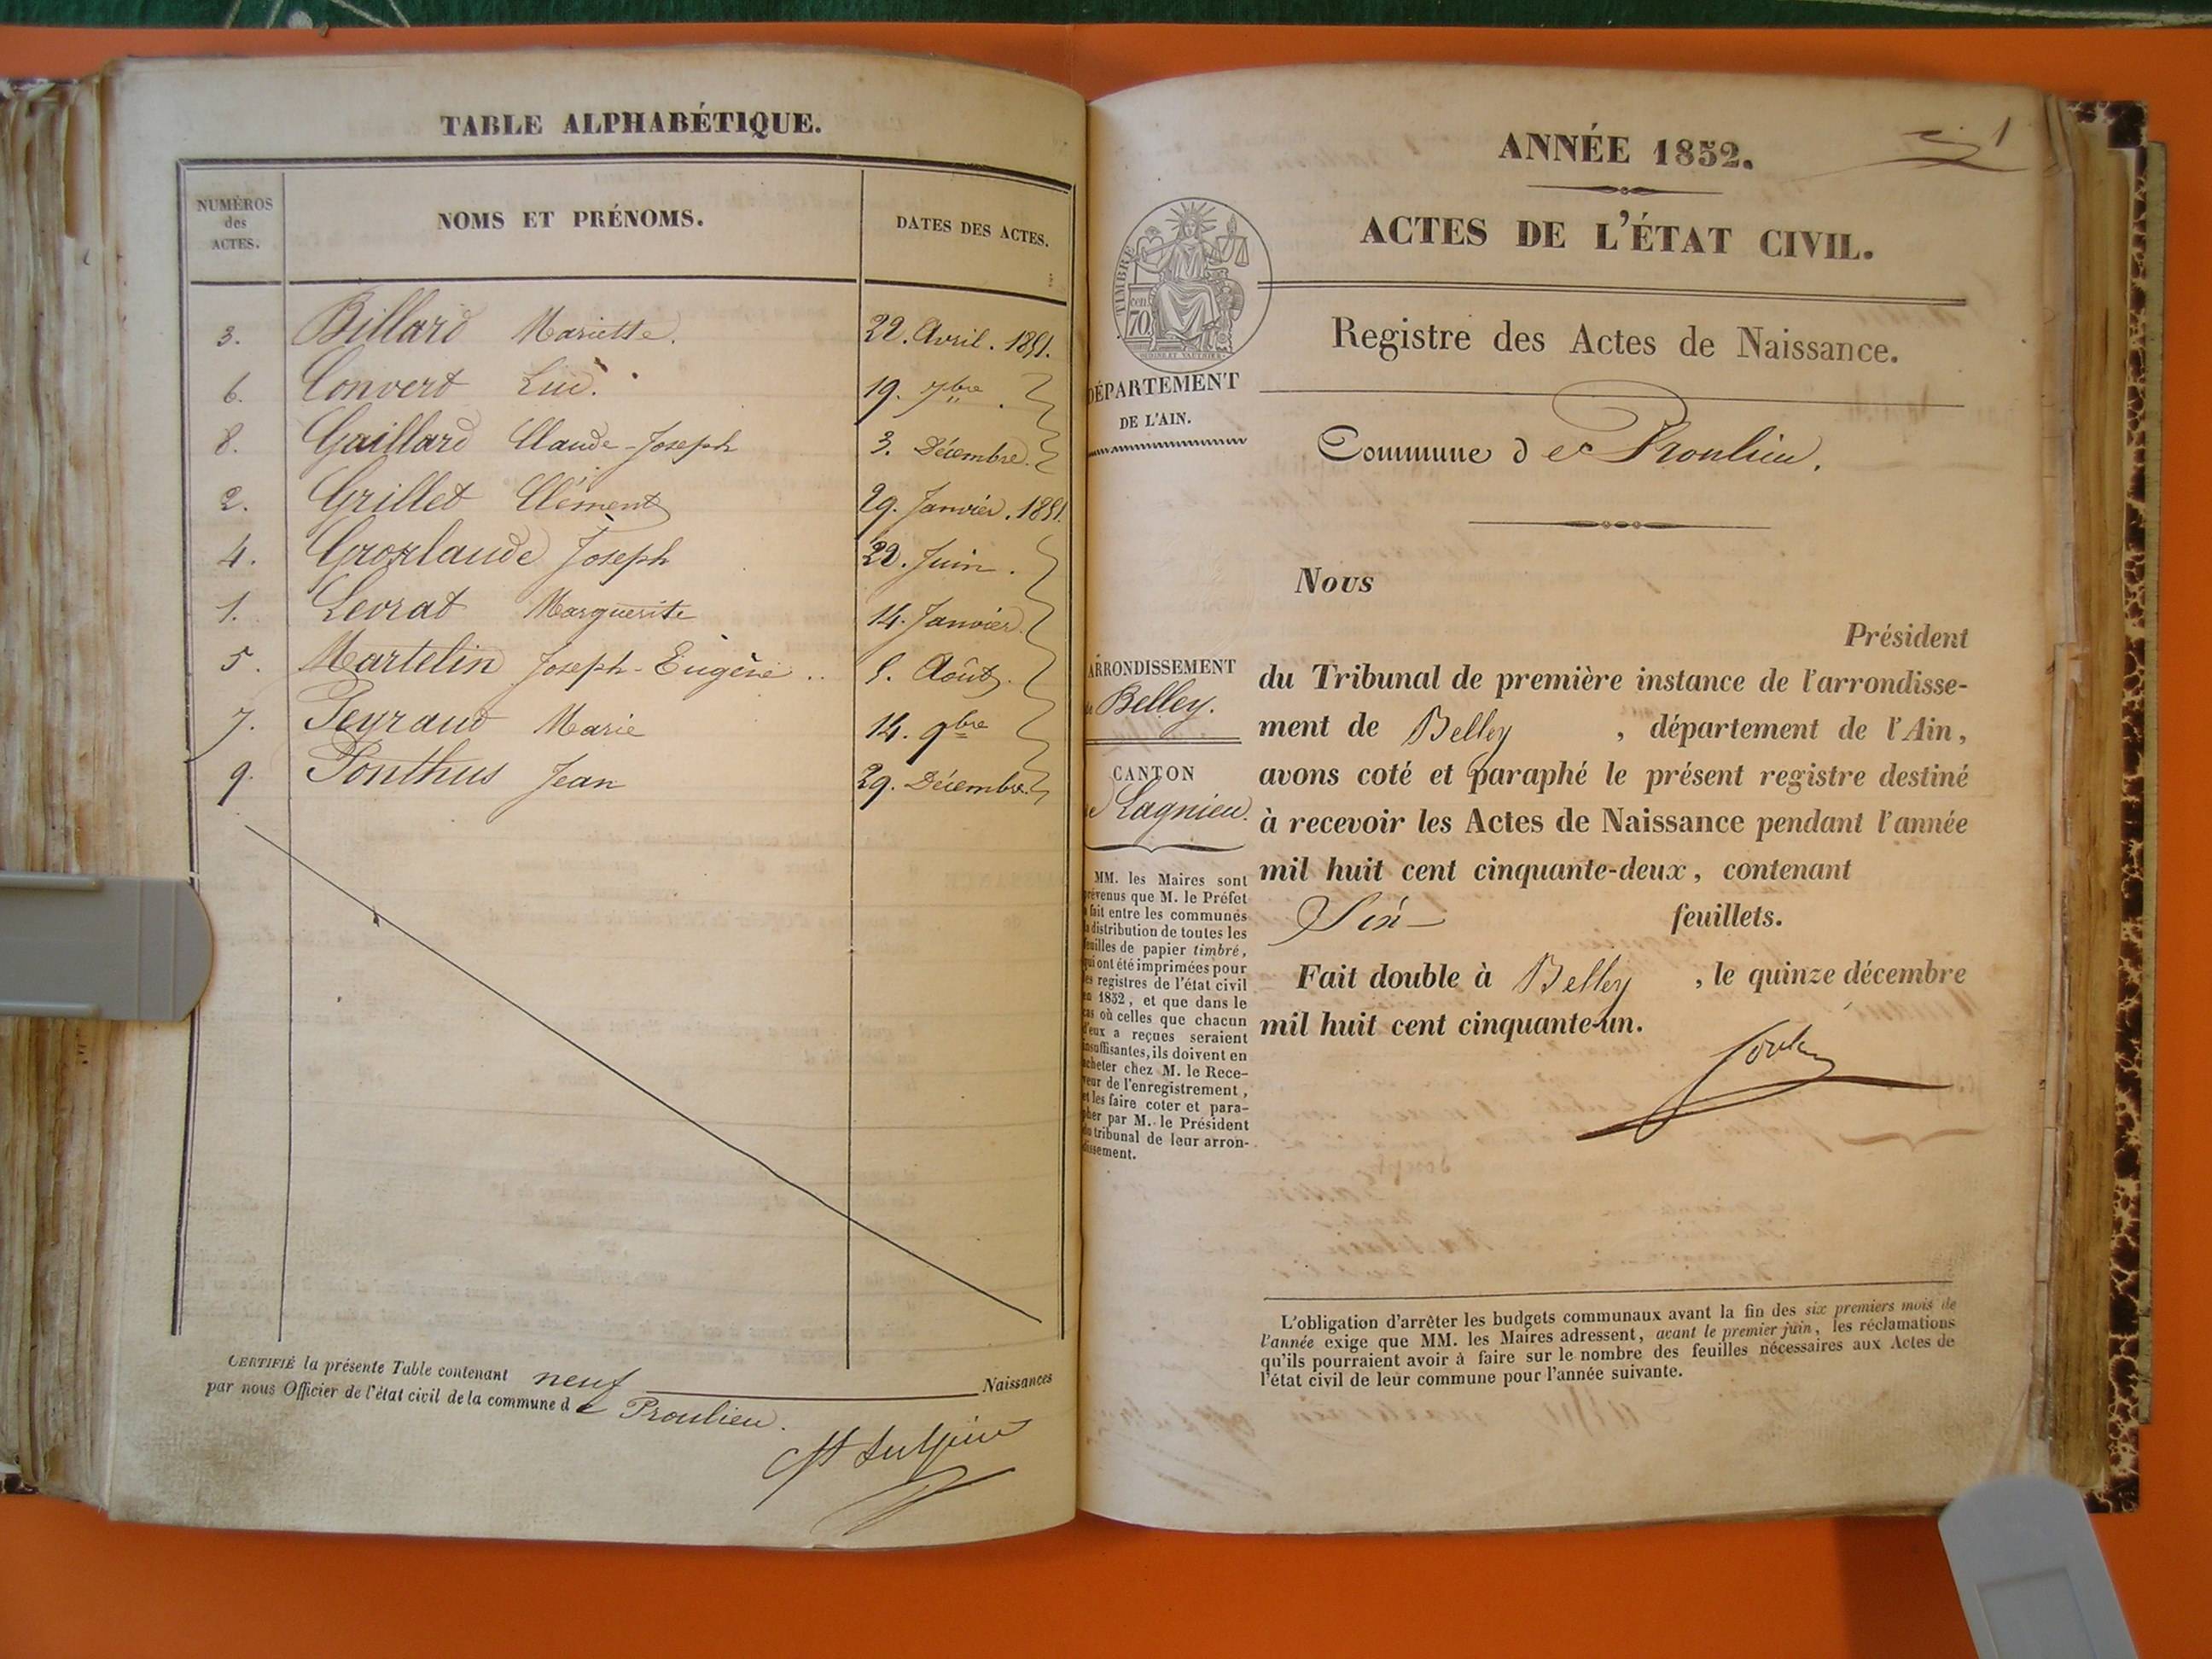 TABLE ALPHABÉTIQUE.
NUMÉROS des ACTES. NOMS ET PRÉNOMS. DATES DES ACTES.
3. Billard Mariette. 22. Avril. 1851.
6. Convert Luc. 19. 7bre
8. Gaillard Claude-Joseph 3. Décembre.
2. Grillet Clément 29. Janvier. 1851.
4. Groxlaude Joseph 22. Juin.
1. Levrat Marguerite 14. Janvier.
5. Martelin Joseph-Eugène .. Août.
7. Peyraud Marie 14. 9bre
9. Ponthus Jean 29. Décembre.
CERTIFIÉ la présente Table contenant neuf Naissances
par nous Officier de l'état civil de la commune de Proulieu.
1
ANNÉE 1852.
ACTES DE L'ÉTAT CIVIL.
TIMBRE
70 cen.
Registre des Actes de Naissance.
DÉPARTEMENT
DE L'AIN.
Commune de Proulieu.
ARRONDISSEMENT
de Belley.
CANTON
de Lagnieu.
MM. les Maires sont
prévenus que M. le Préfet
a fait entre les communes
la distribution de toutes les
feuilles de papier timbré,
qui ont été imprimées pour
les registres de l'état civil
en 1852, et que dans le
cas où celles que chacun
d'eux a reçues seraient
insuffisantes, ils doivent en
acheter chez M. le Rece-
veur de l'enregistrement,
et les faire coter et para-
pher par M. le Président
du tribunal de leur arron-
dissement.
Nous
Président
du Tribunal de première instance de l'arrondisse-
ment de Belley, département de l'Ain,
avons coté et paraphé le présent registre destiné
à recevoir les Actes de Naissance pendant l'année
mil huit cent cinquante-deux, contenant
Six feuillets.
Fait double à Belley, le quinze décembre
mil huit cent cinquante-un.
L'obligation d'arrêter les budgets communaux avant la fin des six premiers mois de
l'année exige que MM. les Maires adressent, avant le premier juin, les réclamations
qu'ils pourraient avoir à faire sur le nombre des feuilles nécessaires aux Actes de
l'état civil de leur commune pour l'année suivante.